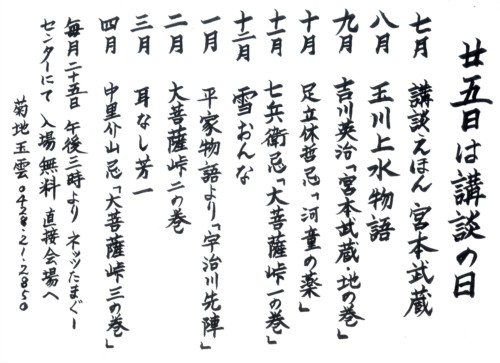 廿五日は講談の日
七月 講談えほん 宮本武蔵
八月 玉川上水物語
九月 吉川英治「宮本武蔵・地の巻」
十月 足立休哲忌「河童の薬」
十一月 七兵衛忌「大菩薩峠一の巻」
十二月 雪おんな
一月 平家物語より「宇治川先陣」
二月 大菩薩峠二の巻
三月 耳なし芳一
四月 中里介山忌「大菩薩峠三の巻」
毎月二十五日 午後三時より ネッツたまぐー
センターにて 入場無料 直接会場へ
菊地玉雲 0428・21・2850